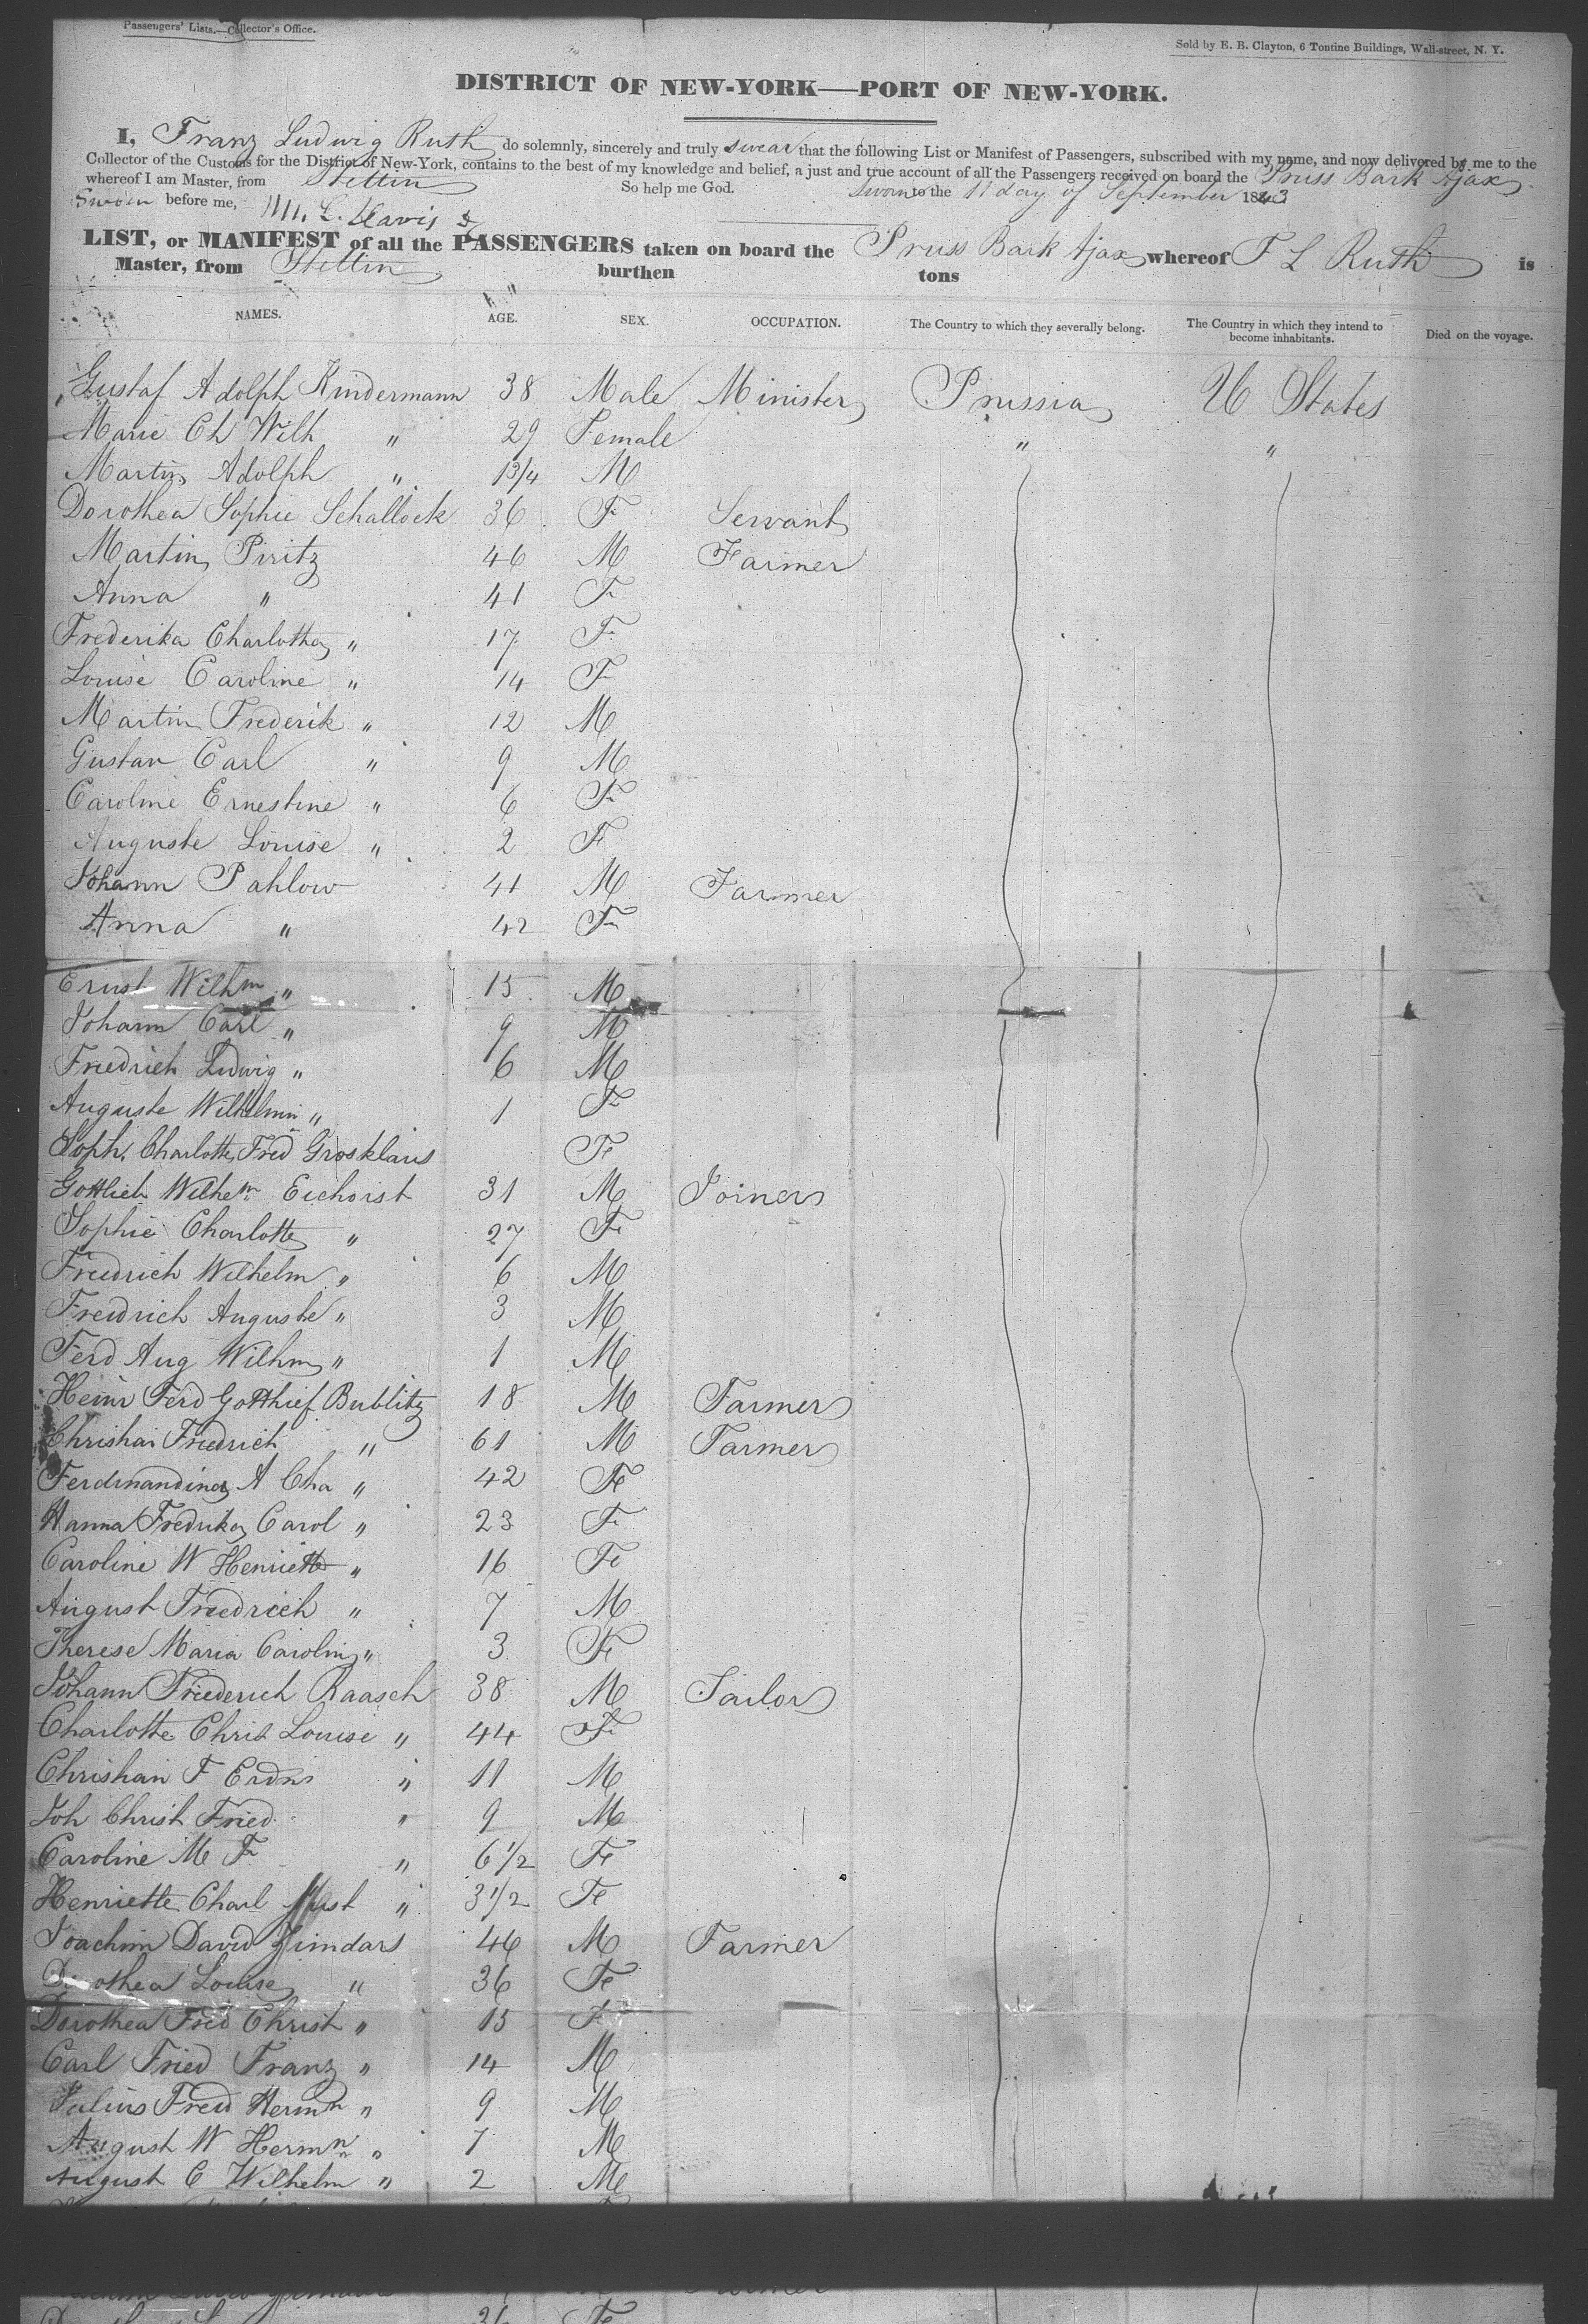 Passengers' Lists.—Collector's Office.
Sold by E. B. Clayton, 6 Tontine Buildings, Wall-street, N. Y.
DISTRICT OF NEW-YORK—PORT OF NEW-YORK.
I, Franz Ludwig Ruth do solemnly, sincerely and truly swear that the following List or Manifest of Passengers, subscribed with my name, and now delivered by me to the
Collector of the Customs for the District of New-York, contains to the best of my knowledge and belief, a just and true account of all the Passengers received on board the Pruss Bark Ajax
whereof I am Master, from Stettin So help me God. Sworn to the 11 day of September 1843
Sworn before me,
LIST, or MANIFEST of all the PASSENGERS taken on board the Pruss Bark Ajax whereof F L Ruth is
Master, from Stettin burthen tons
NAMES. AGE. SEX. OCCUPATION. The Country to which they severally belong. The Country in which they intend to become inhabitants. Died on the voyage.
Gustaf Adolph Kindermann 38 Male Minister Prussia U States
Marie Ch Wilh " 29 Female " "
Martin Adolph " 13/4 M
Dorothea Sophie Schallock 36 F Servant
Martin Piritz 46 M Farmer
Anna " 41 F
Frederika Charlotha " 17 F
Louise Caroline " 14 F
Martin Frederik " 12 M
Gustav Carl " 9 M
Caroline Ernestine " 6 F
Auguste Louise " 2 F
Johann Pahlow 41 M Farmer
Anna " 42 F
Ernst Wilhm " 15 M
Johann Carl " 9 M
Friedrich Ludwig " 6 M
Auguste Wilhelmin " 1 F
Soph. Charlotte Fred Grosklaus Fe
Gottlieb Wilhelm Eichorst 31 M Joiner
Sophie Charlotte " 27 Fe
Friedrich Wilhelm " 6 M
Freidrich Auguste " 3 M
Ferd Aug Wilhm " 1 M
Heinr Ferd Gotthief Bublitz 18 M Farmer
Christian Friedrich " 61 M Farmer
Ferdinandina A Cha " 42 Fe
Hanna Fredrika Carol " 23 F
Caroline W Henriette " 16 Fe
August Friedrich " 7 M
Therese Maria Carolin " 3 Fe
Johann Friederich Raasch 38 M Tailor
Charlotte Christ Louise " 44 F
Christian F Erdm " 11 M
Joh Christ Fried " 9 M
Caroline M F " 6 1/2 Fe
Henriette Charl " 3 1/2 Fe
Joachim David Zimdars 46 M Farmer
Dorothea Louise " 36 Fe
Dorothea Fred Christ " 15 F
Carl Fried Franz " 14 M
Julius Fred Hermn " 9 M
August W Hermn " 7 M
August C Wilhelm " 2 M
36 Fe